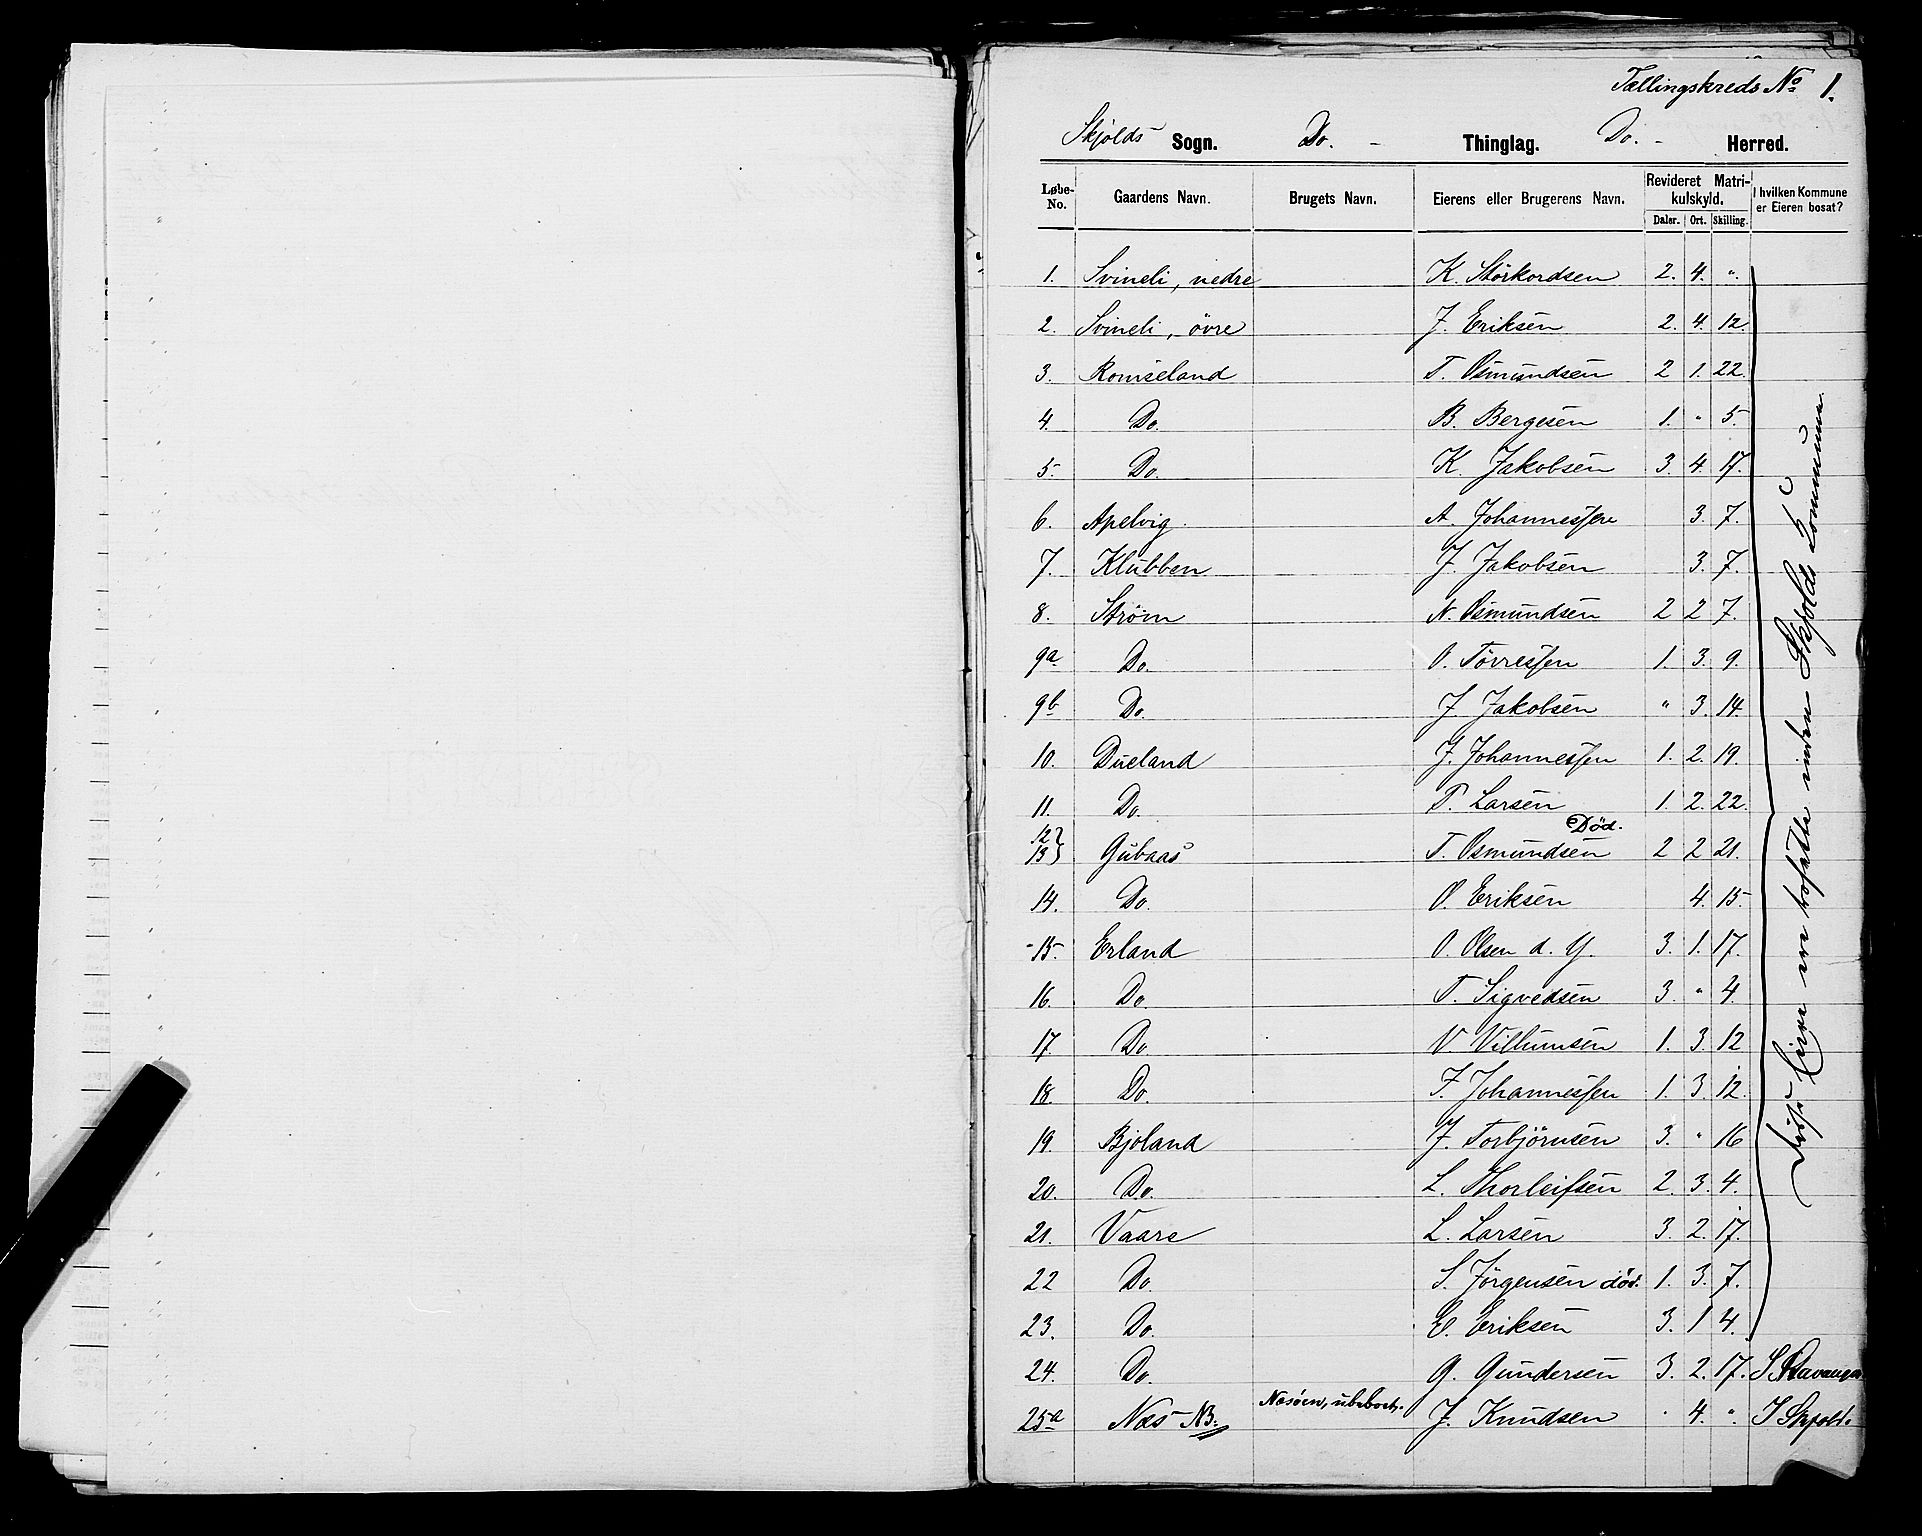 Tællingskreds No 1.
Skjolds Sogn. Do. - Thinglag. Do. - Herred.
Løbe-No. Gaardens Navn. Brugets Navn. Eierens eller Brugerens Navn. Revideret Matrikulskyld. I hvilken Kommune er Eieren bosat?
Daler. Ort. Skilling.
1. Svineli, nedre K. Störkordsen 2. 4. ".
2. Svineli, övre J. Eriksen 2. 4. 12.
3. Romseland T. Osmundsen 2 1. 22.
4. Do. B. Bergesen 1. " 5.
5. Do. K. Jakobsen 3. 4. 17.
6. Apelvig. A. Johannessen 3. 7.
7. Klubben J. Jakobsen 3. 7.
8. Strøm N. Osmundsen 2 2 7.
9a Do. O. Törressen 1. 3. 9.
9b Do. J. Jakobsen " 3. 14.
10. Dueland J. Johannessen 1. 2. 19.
11. Do. P. Larsen 1. 2. 22.
12 } 13 } Gubaas T. Osmundsen Död. 2 2 21.
14. Do. O. Eriksen 4. 15.
15. Erland O. Olsen d. Y. 3. 1. 17.
16. Do. T. Sigvedsen 3. " 4.
17. Do. V. Villumsen 1. 3. 12
18. Do. F. Johannessen 1. 3. 12.
19. Bjoland J. Torbjörnsen 3. " 16
20. Do. L. Thorleifsen 2. 3. 4.
21. Vaare L. Larsen 3. 2. 17.
22 Do. S. Jörgensen död. 1. 3. 7.
23. Do. E. Eriksen 3. 1 4.
24. Do. G. Gundersen 3. 2. 17. I Stavanger
25a Næs NB. Næsöen, ubeboet. J. Knudsen . 4. ". I Skjold.
Disse Eiere ere bosatte inden Skjolds Kommune.